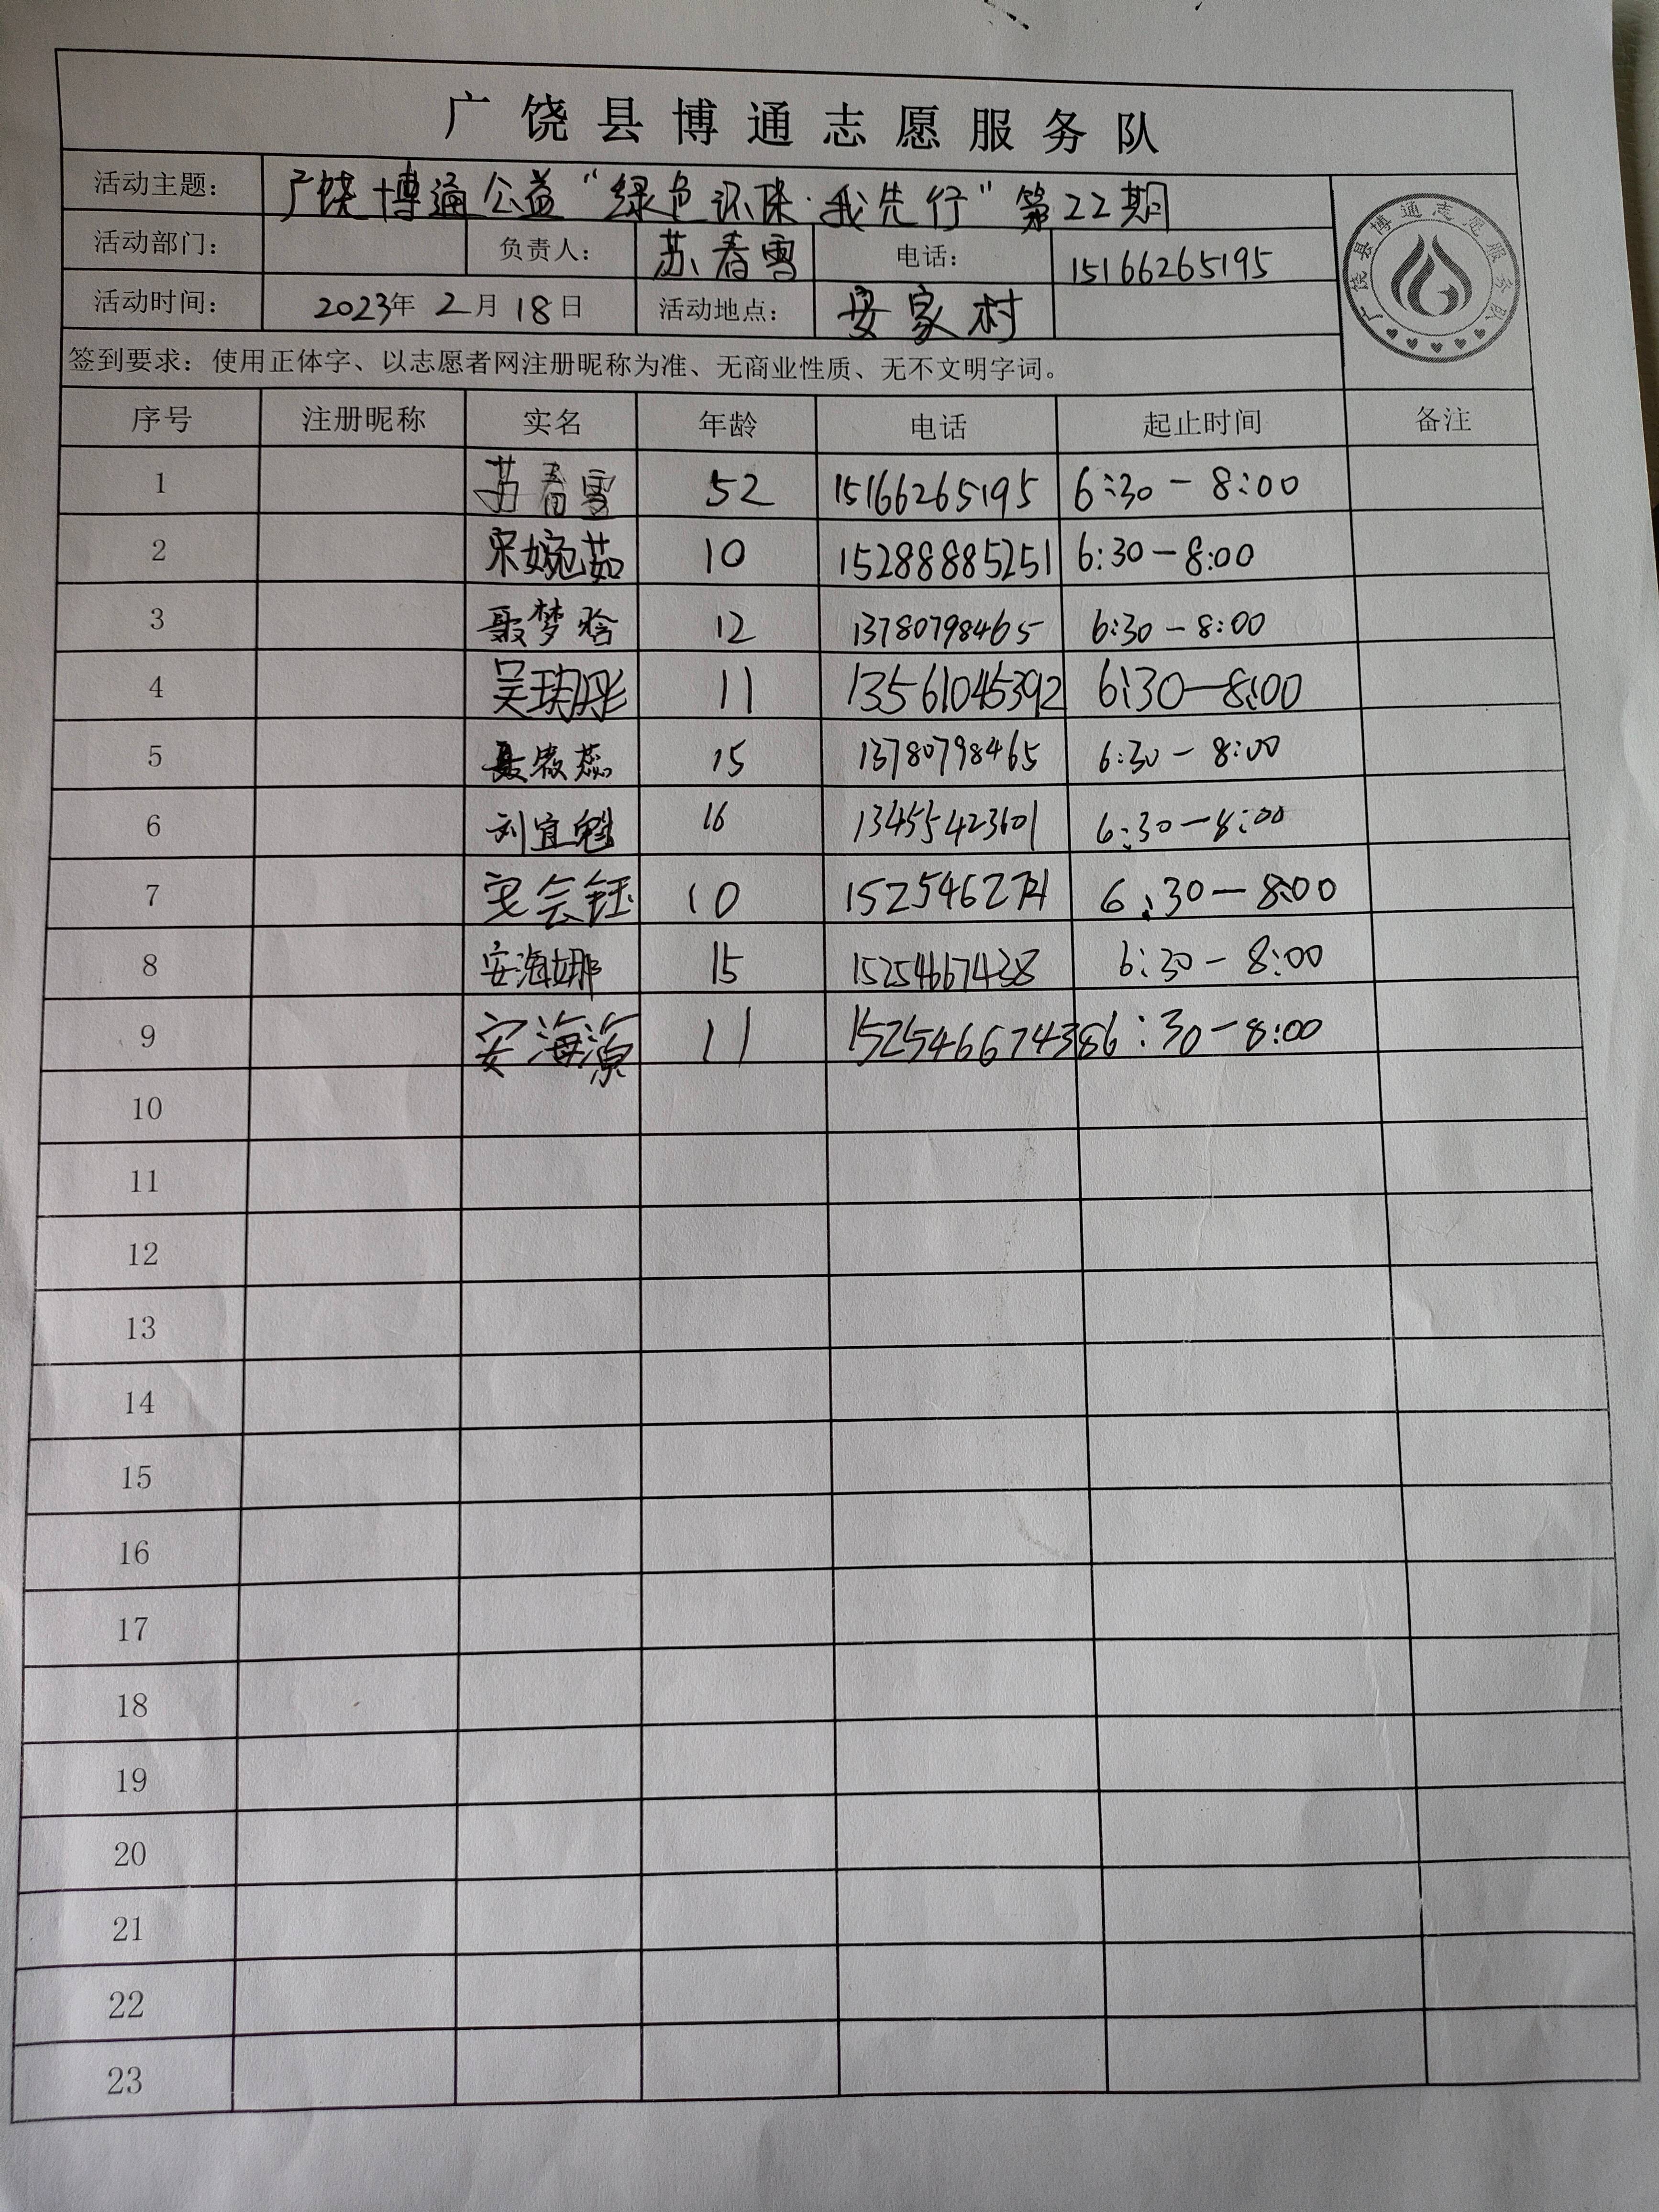 广饶县博通志愿服务队
活动主题： 广饶博通公益“绿色环保·我先行”第22期
活动部门： 负责人： 苏春雪 电话： 15166265195
活动时间： 2023年 2月 18日 活动地点： 安家村
广饶县博通志愿服务队
签到要求：使用正体字、以志愿者网注册昵称为准、无商业性质、无不文明字词。
序号 注册昵称 实名 年龄 电话 起止时间 备注
1 苏春雪 52 15166265195 6:30-8:00
2 宋婉茹 10 15288885251 6:30-8:00
3 聂梦晗 12 13780798465 6:30-8:00
4 吴玥彤 11 13561045392 6:30-8:00
5 聂 15 13780798465 6:30-8:00
6 刘宜魁 16 13455423601 6:30-8:00
7 安会钰 10 6:30-8:00
8 安海娜 15 15254667438 6:30-8:00
9 安海源 11 15254667438 6:30-8:00
10
11
12
13
14
15
16
17
18
19
20
21
22
23